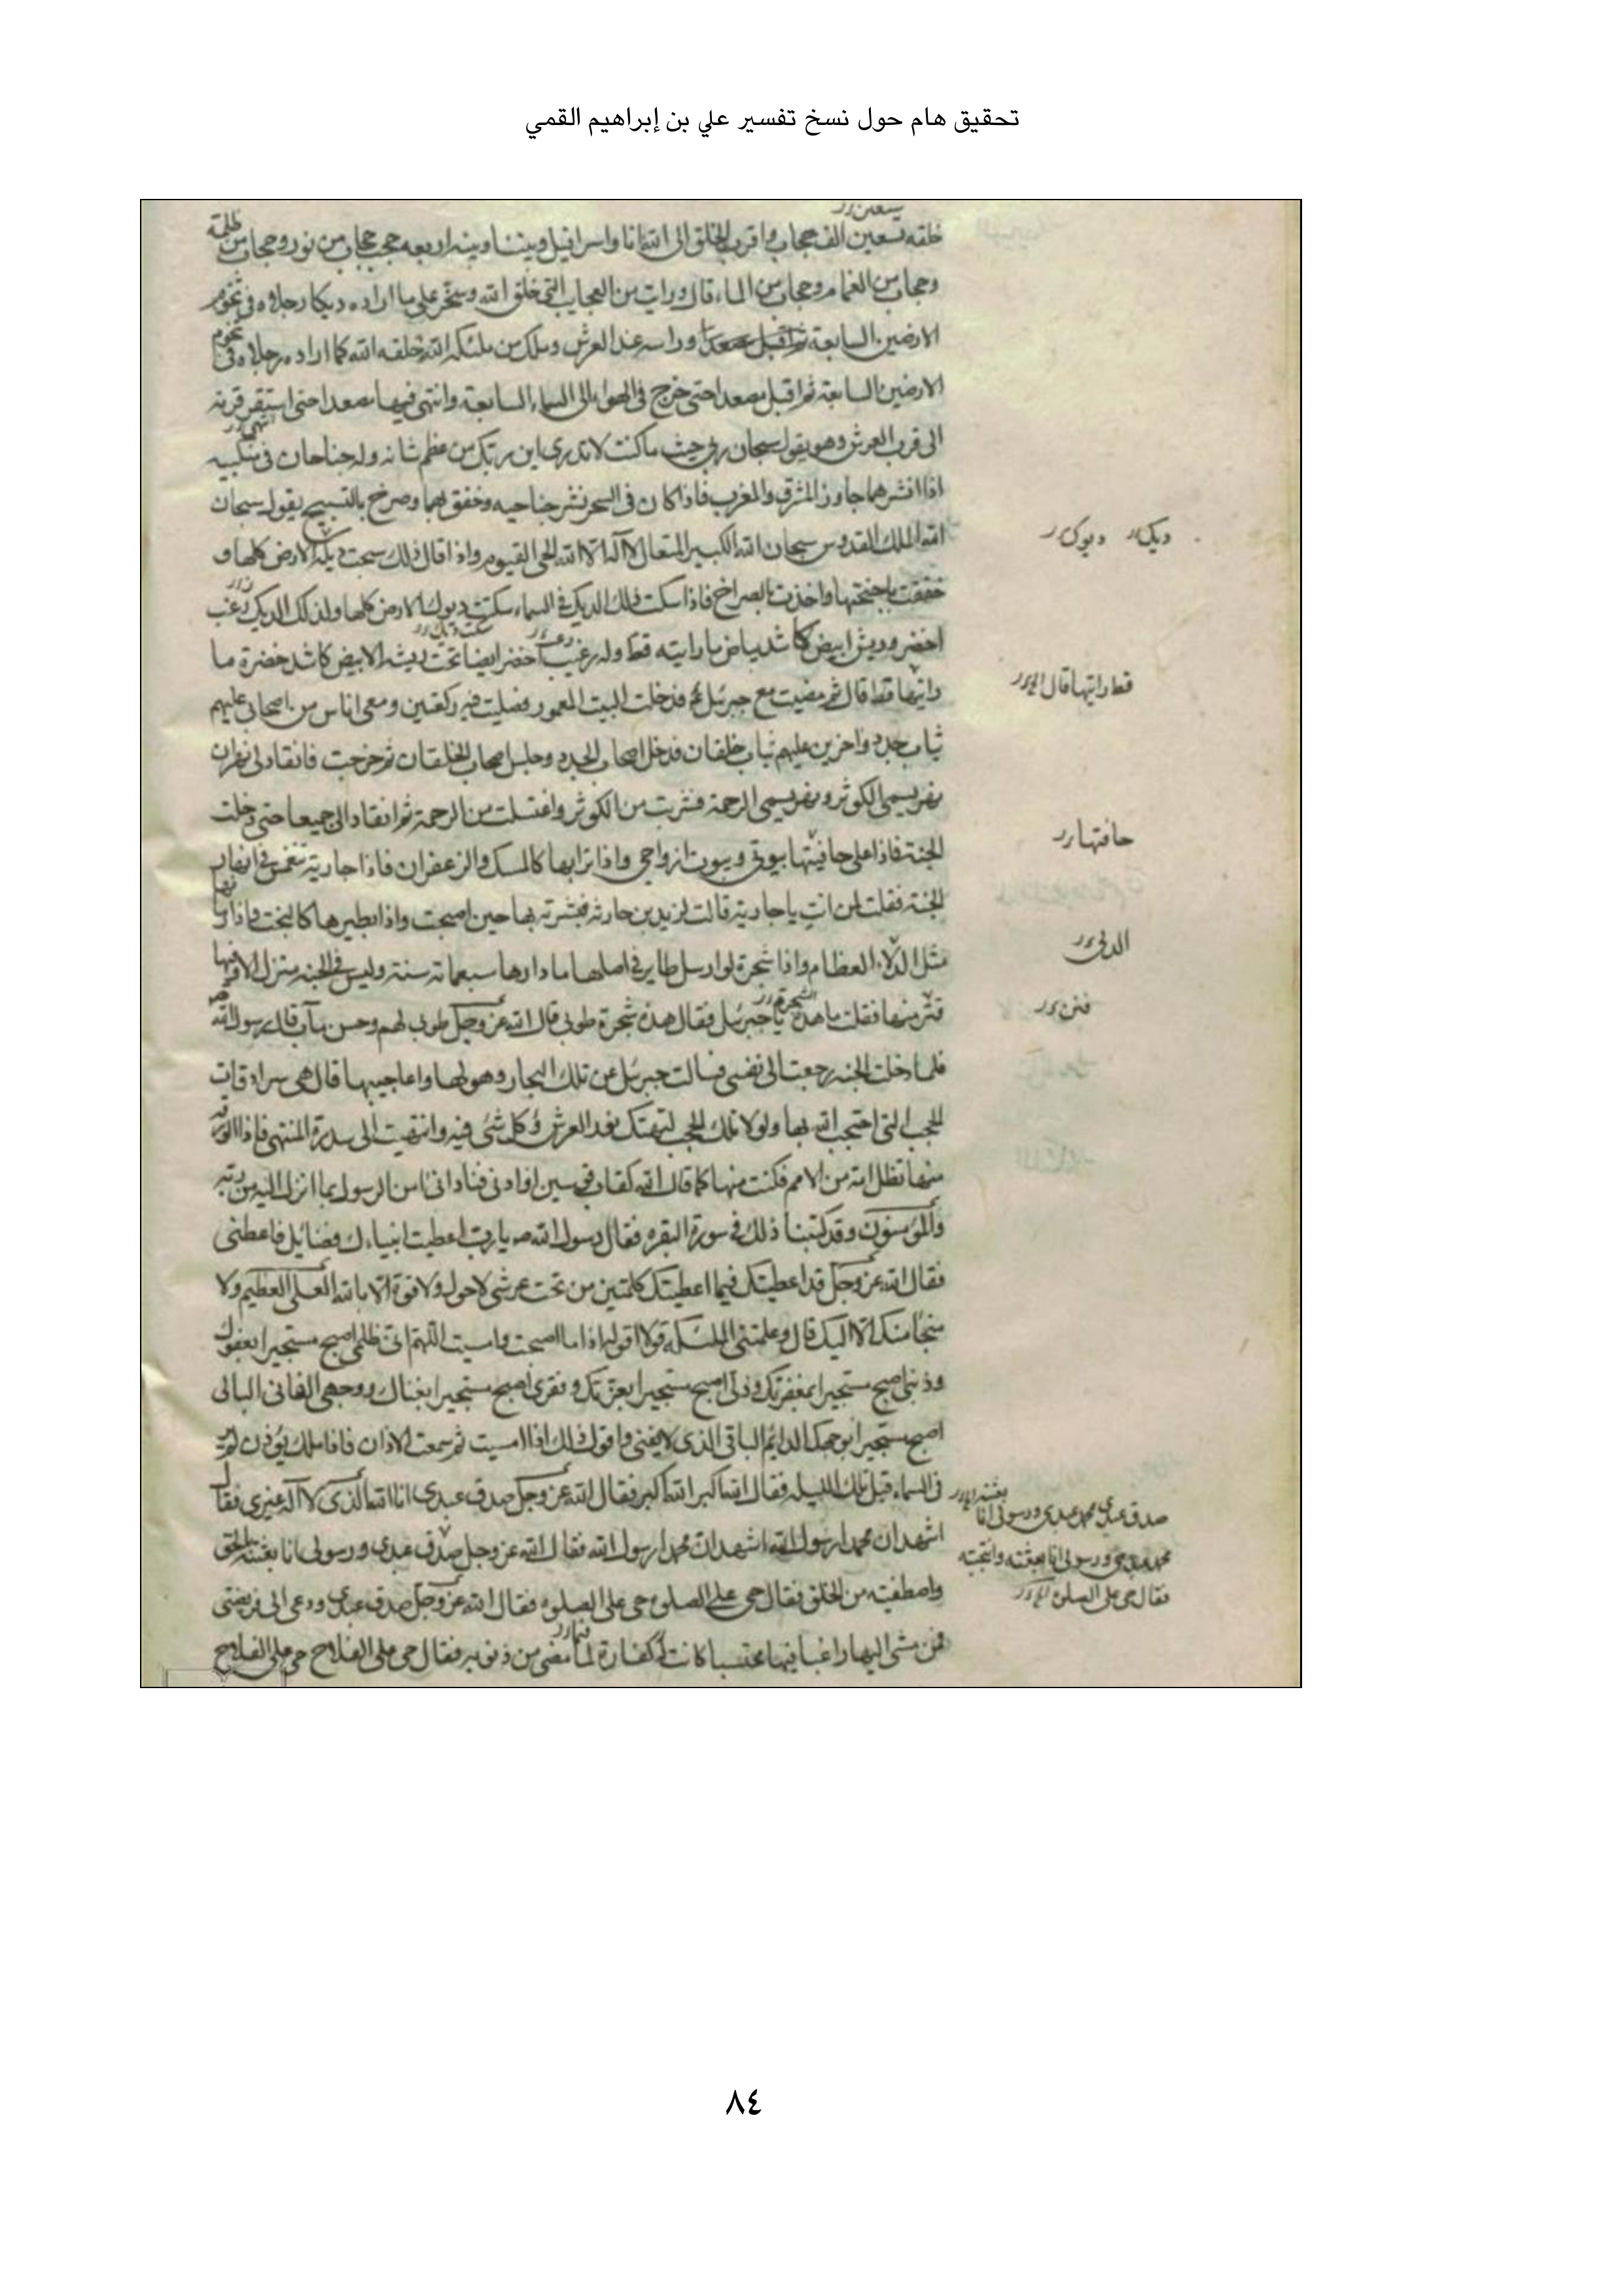 تحقيق هام حول نسخ تفسير علي بن إبراهيم القمي
خلقه تسعين الف حجاب واقرب الخلق الى الله انا واسرافيل وبيننا وبينه اربعه حجب حجاب من نور وحجاب من ظلمة
وحجاب من الغمام وحجاب من الماء قال ورايت من العجايب التي خلق الله وسخر على ما اراده ديكا رجلاه في تخوم
الارضين السابعة وراسه عند العرش وملك من ملئكه الله خلقه الله كما اراد رجلاه في تخوم
الارضين السابعة ثم اقبل مصعدا حتى خرج في الهواء الى السماء السابعة وانتهى فيها مصعدا حتى استقر قرنه
الى قرب العرش وهو يقول سبحان ربي حيث ما كنت لا تدري اين ربك من عظم شانه وله جناحان في منكبيه
اذا نشرهما جاوز المشرق والمغرب فاذا كان في السحر نشر جناحيه وخفق بهما وصرخ بالتسبيح يقول سبحان
الله الملك القدوس سبحان الله الكبير المتعال لا آله الا الله الحي القيوم واذا قال ذلك سبحت ديكة الارض كلها و
ديك ديوك
خفقت باجنحتها واخذت بالصراخ فاذا سكت ذلك الديك في السماء سكتت ديوك الارض كلها ولذلك الديك زغب
اخضر وريش ابيض كاشد بياض ما رايته قط وله زغب اخضر ايضا تحت ريشه الابيض كاشد خضرة ما
رايتها قط قال ثم مضيت مع جبرئيل ع فدخلت البيت المعمور فصليت فيه ركعتين ومعي اناس من اصحابي عليهم
قط رايتها قال
ثياب جدد واخرين عليهم ثياب خلقان فدخل اصحاب الجدد وجلس اصحاب الخلقان ثم خرجت فانقاد لي نهران
نهر يسمى الكوثر ونهر يسمى الرحمة فشربت من الكوثر واغتسلت من الرحمة ثم انقادا لي جميعا حتى دخلت
الجنة فاذا على حافيتها بيوتي وبيوت ازواجي واذا ترابها كالمسك والزعفران فاذا جارية تنغمس في انهار
حافتها
الجنة فقلت لمن انت يا جارية قالت لزيد بن حارثه فبشرته بها حين اصبحت واذا بطيرها كالبخت واذا رمانها
مثل الدلاء العظام واذا شجرة لو ارسل طاير في اصلها ما دارها سبعمائة سنة وليس في الجنة منزل الا وفيها
الدلي
قتر منها فقلت ما هذه يا جبرئيل فقال هذه شجرة طوبى قال الله عز وجل طوبى لهم وحسن مآب قال رسول الله
فنن
فلما دخلت الجنة رجعت الى نفسي فسالت جبرئيل عن تلك البحار وهولها واعاجيبها قال هي سرادقات
الحجب التي احتجب الله بها ولولا تلك الحجب لتهتك نور العرش وكل شئ فيه وانتهيت الى سدرة المنتهى فاذا الورقة
منها تظل امة من الامم فكنت منها كما قال الله كقاب قوسين او ادنى فناداني امن الرسول بما انزل اليه من ربه
والمؤمنون وقد كتبنا ذلك في سورة البقره فقال رسول الله ص يا رب اعطيت انبياءك فضايل فاعطني
فقال الله عز وجل قد اعطيتك فيما اعطيتك كلمتين من تحت عرشي لا حول ولا قوة الا بالله العلي العظيم ولا
منجا منك الا اليك قال وعلمتني الملئكه قولا اقوله اذا ما اصبحت وامسيت اللهم ان ظلمي اصبح مستجيرا بعفوك
وذنبي اصبح مستجيرا بمغفرتك وذلي اصبح مستجيرا بعزتك وفقري اصبح مستجيرا بغناك ووجهي الفاني البالي
اصبح مستجيرا بوجهك الدايم الباقي الذي لا يفنى واقول ذلك اذا امسيت ثم سمعت الاذان فاذا ملك يؤذن لم ير
في السماء قبل تلك الليلة فقال الله اكبر الله اكبر فقال الله عز وجل صدق عبدي انا الله الذي لا آله غيري فقال
صدق عبدي محمد عبدي ورسولي انا
اشهد ان محمدا رسول الله اشهد ان محمدا رسول الله فقال الله عز وجل صدق عبدي ورسولي انا بعثته بالحق
محمد عبدي ورسولي انا بعثته وانتجبته
واصطفيته من الخلق فقال حي على الصلوة حي على الصلوة فقال الله عز وجل صدق عبدي ودعى الى فريضتي
فقال حي على الصلوة
فمن مشى اليها راغبا فيها محتسبا كانت له كفارة لما مضى من ذنوبه فقال حي على الفلاح حي على الفلاح
٨٤